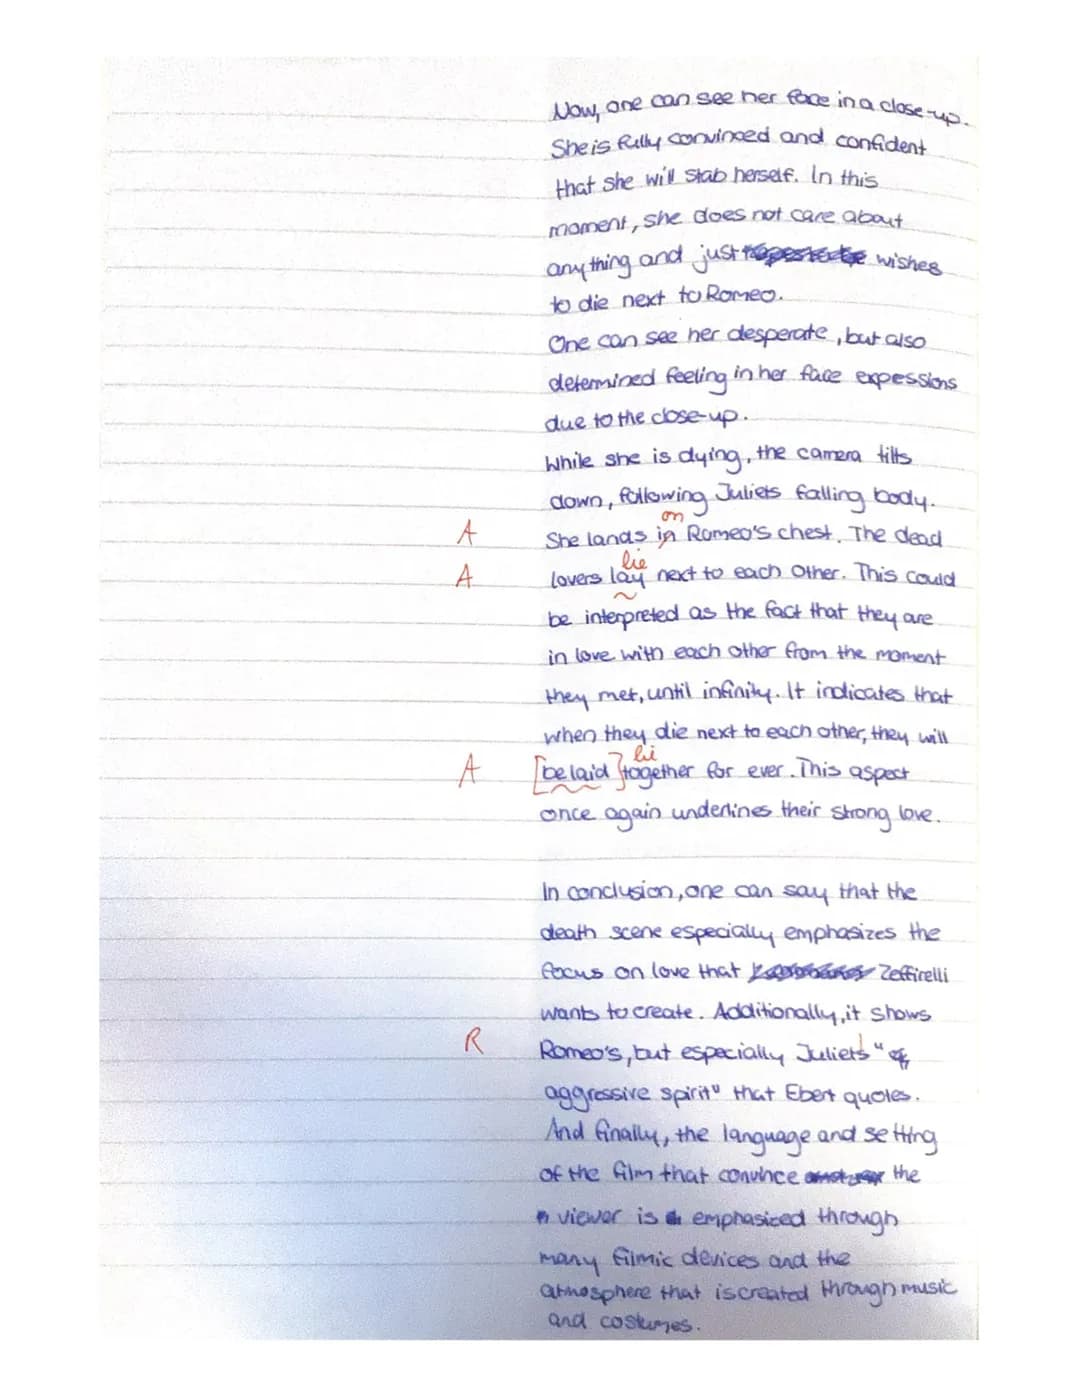 Now, one can see her face in a close-up.
She is fully convinced and confident
that she will stab herself. In this
moment, she does not care about
anything and just wishes
to die next to Romeo.
One can see her desperate, but also
determined feeling in her face expessions
due to the close-up.
While she is dying, the camera tilts
down, following Juliets falling body.
on
A She lands in Romeo's chest. The dead
lie
A lovers lay next to each other. This could
be interpreted as the fact that they are
in love with each other from the moment
they met, until infinity. It indicates that
when they die next to each other, they will
lie
A [be laid] together for ever. This aspect
once again underlines their strong love.
In conclusion, one can say that the
death scene especially emphasizes the
focus on love that Zeffirelli
wants to create. Additionally, it shows
R Romeo's, but especially Juliet's "
aggressive spirit" that Ebert quotes.
And finally, the language and setting
of the film that convince the
viewer is emphasized through
many filmic devices and the
atmosphere that is created through music
and costumes.